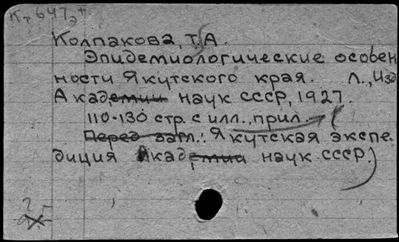 Колпакова, Т.А.
Эпидемиологические особен
ности Якутского края. Л., Изд
Академии наук СССР, 1927.
110-130 стр. с илл., прил.
Перед загл.: Якутская экспе
диция Академиа наук СССР.)